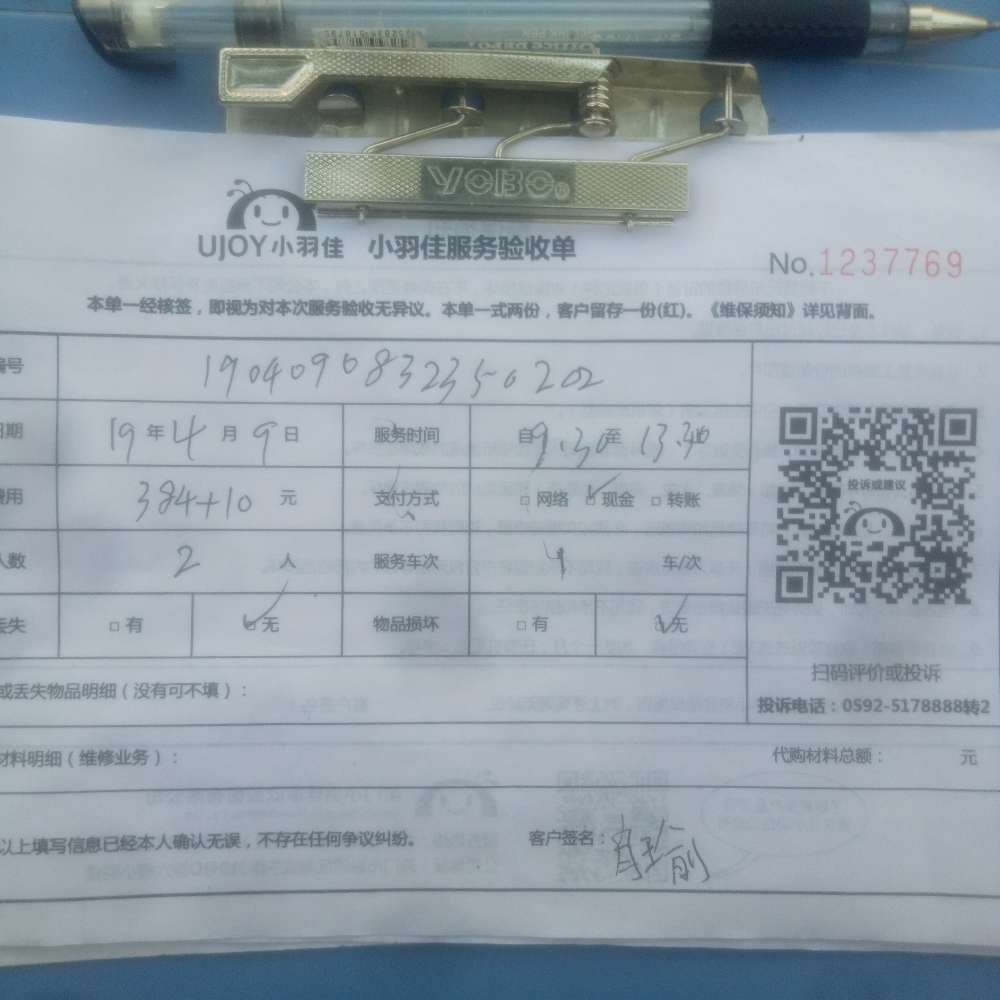 YOBO®
UJOY小羽佳 小羽佳服务验收单
No.1237769
本单一经核签，即视为对本次服务验收无异议。本单一式两份，客户留存一份(红)。《维保须知》详见背面。
号 1904090832350202
期 19年4月9日 服务时间 自9:30至13:30
用 384+10 元 支付方式 □网络 □现金 □转账
人数 2 人 服务车次 4 车/次
丢失 □有 □无 物品损坏 □有 □无
投诉或建议
扫码评价或投诉
投诉电话：0592-5178888转2
或丢失物品明细（没有可不填）：
材料明细（维修业务）： 代购材料总额： 元
以上填写信息已经本人确认无误，不存在任何争议纠纷。 客户签名：